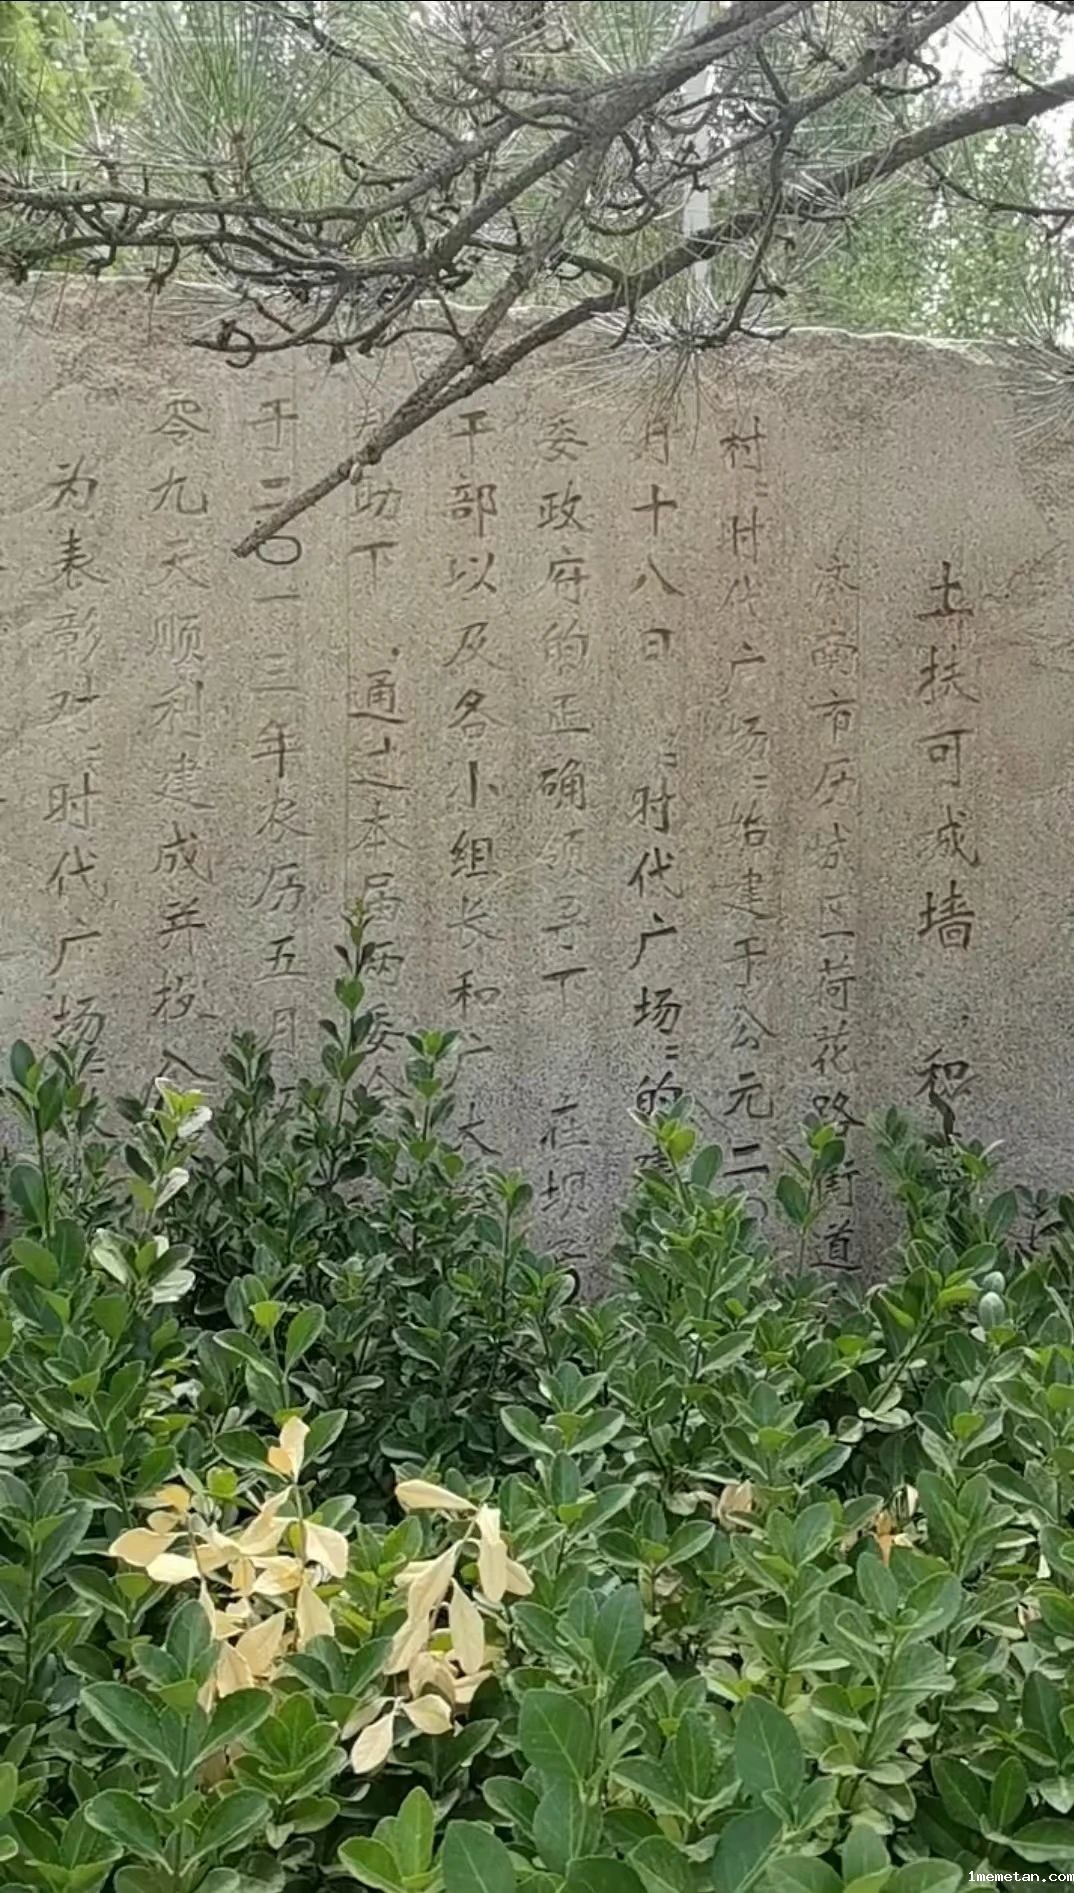 土扶可成墙，积
济南市历城区荷花路街道
村"时代广场"始建于公元二〇
月十八日"时代广场"的
委政府的正确领导下 在坝子
干部以及各小组长和广大
助下，通过本届两委会
于二〇一三年农历五月
零九天顺利建成并投入
为表彰对"时代广场"
1memetan.com